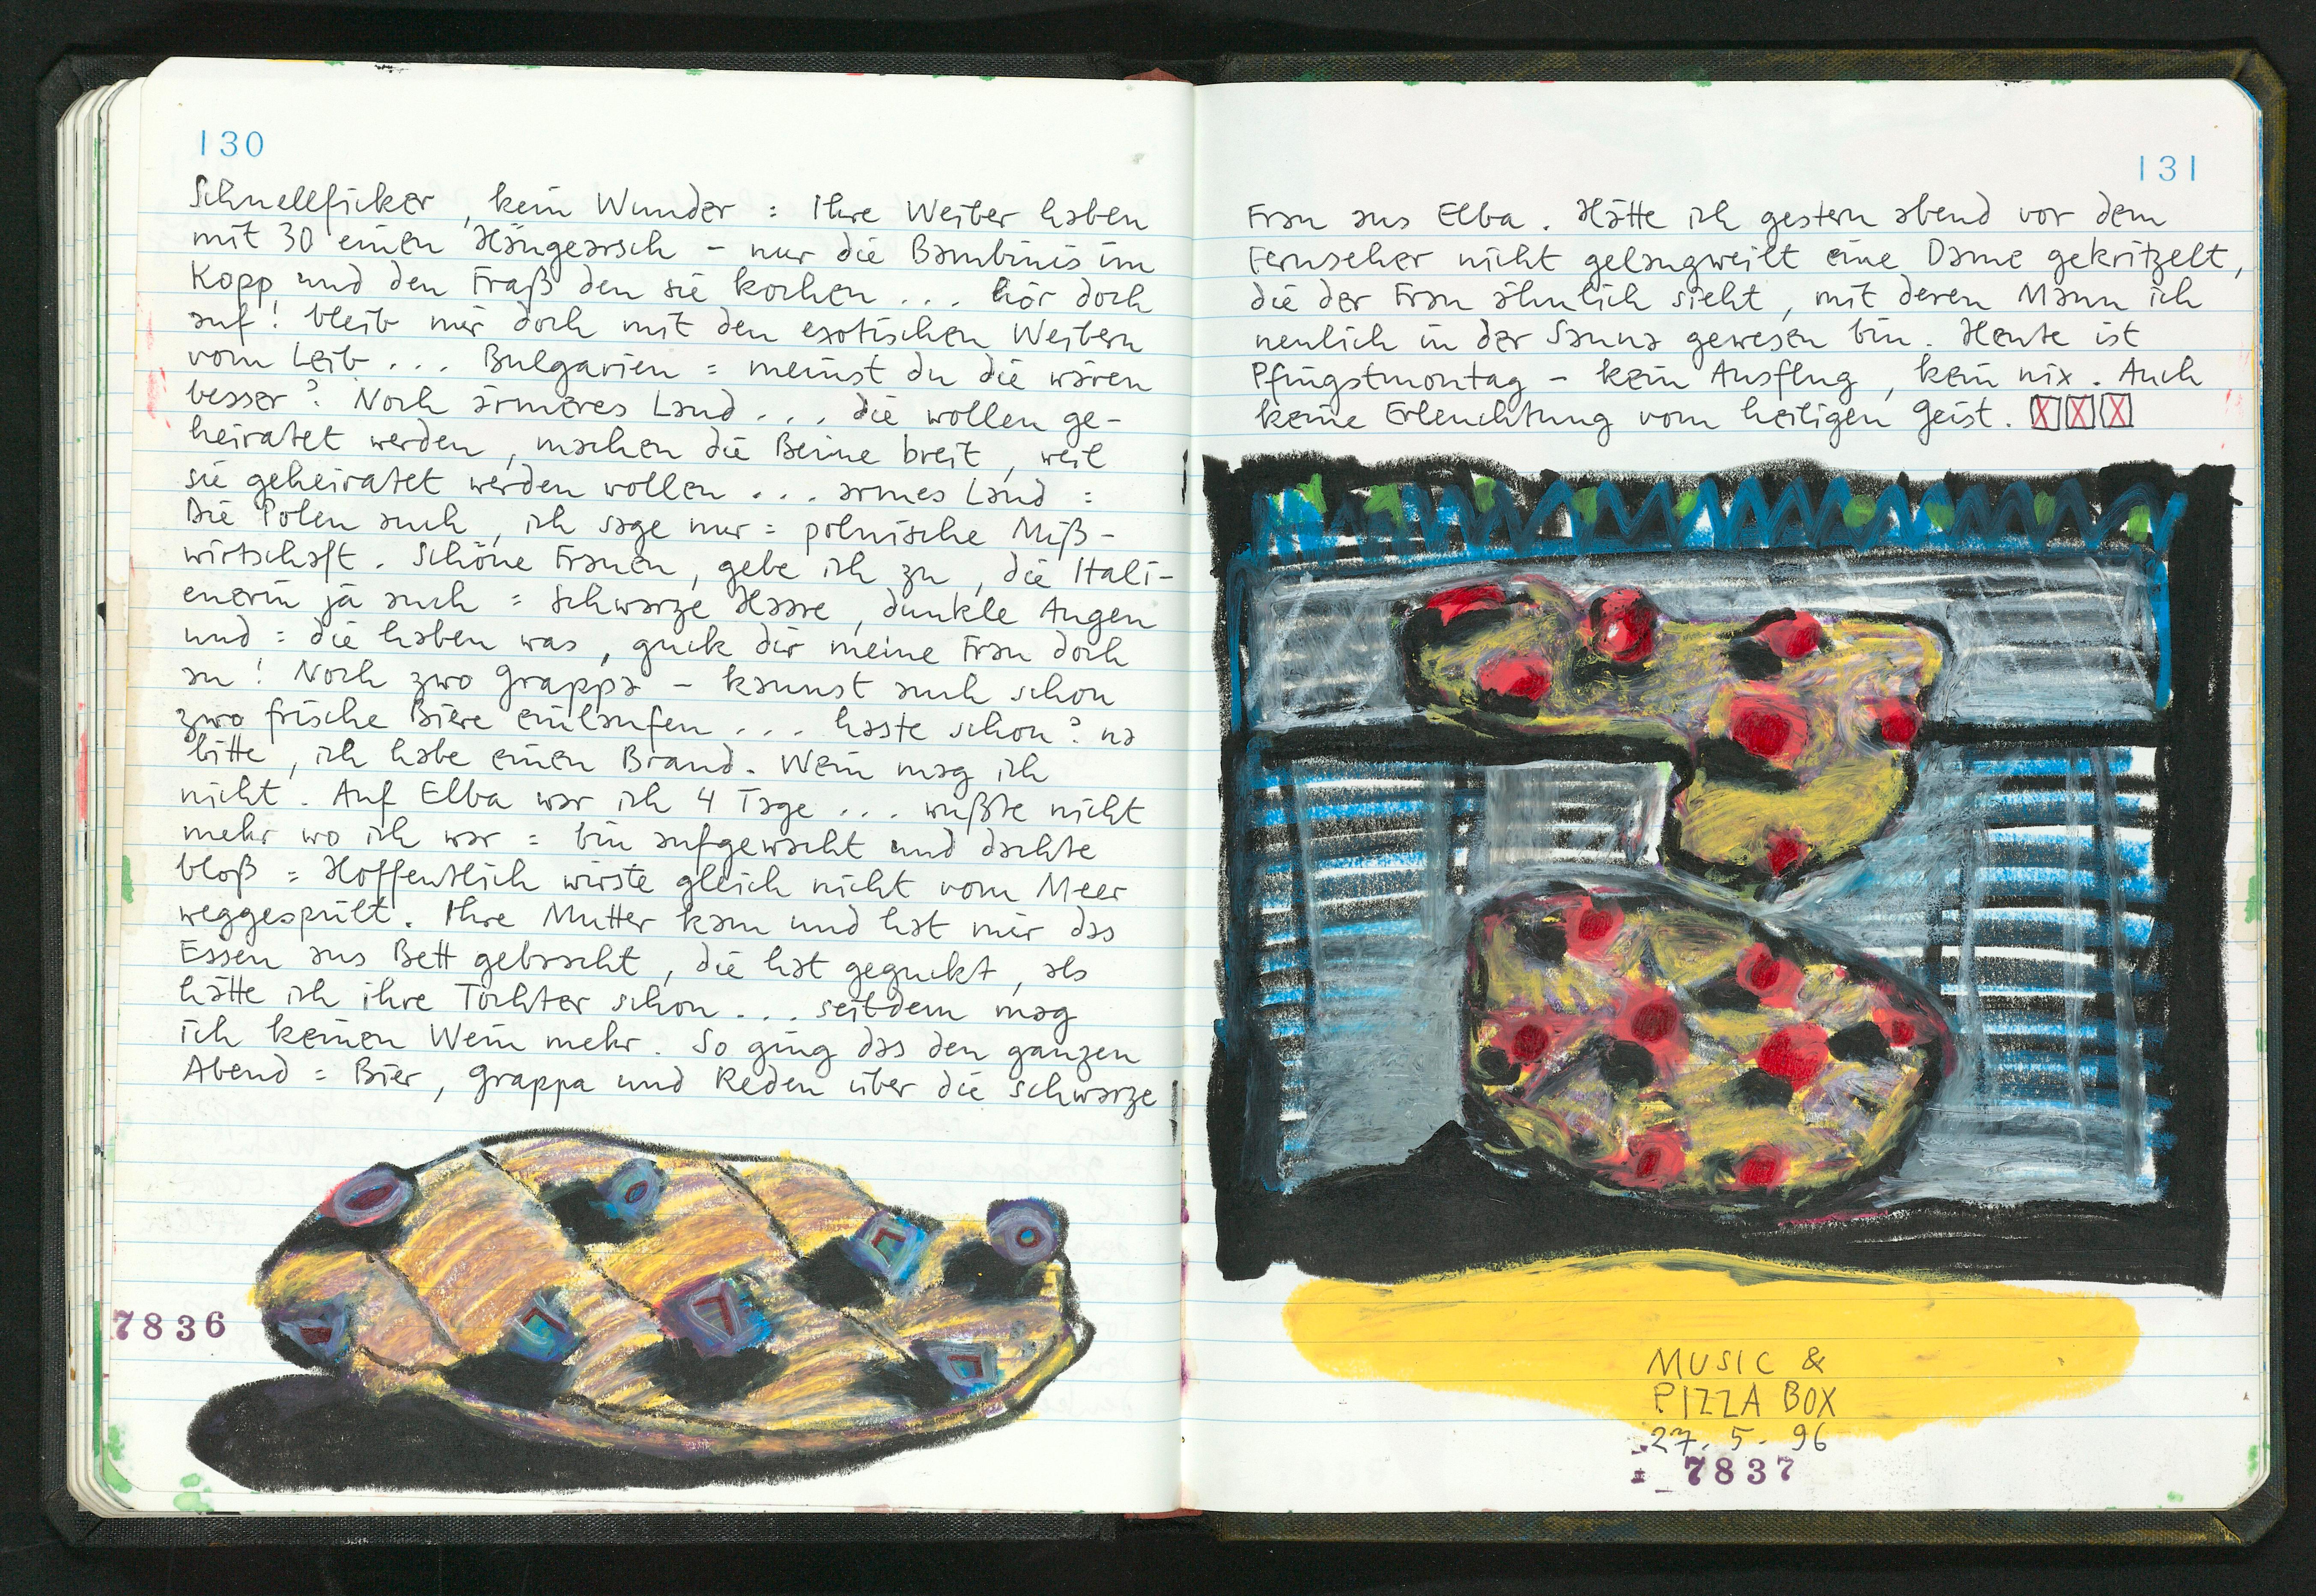 130
Schnellficker, kein Wunder = Ihre Weiber haben
mit 30 einen Hängearsch – nur die Bambinis im
Kopp und den Fraß den sie kochen ... hör doch
auf! bleib mir doch mit den exotischen Weibern
vom Leib ... Bulgarien = meinst du die wären
besser? Noch ärmeres Land ... die wollen ge-
heiratet werden, machen die Beine breit, weil
sie geheiratet werden wollen ... armes Land =
Die Polen auch, ich sage nur = polnische Miß-
wirtschaft. Schöne Frauen, gebe ich zu, die Itali-
enerin ja auch = schwarze Haare, dunkle Augen
und = die haben was, guck dir meine Frau doch
an! Noch zwo Grappa – kannst auch schon
zwo frische Biere einlaufen ... haste schon? na
bitte, ich habe einen Brand. Wein mag ich
nicht. Auf Elba war ich 4 Tage ... wußte nicht
mehr wo ich war = bin aufgewacht und dachte
bloß = Hoffentlich wirste gleich nicht vom Meer
weggespült. Ihre Mutter kam und hat mir das
Essen ans Bett gebracht, die hat geguckt, als
hätte ich ihre Tochter schon ... seitdem mag
ich keinen Wein mehr. So ging das den ganzen
Abend = Bier, Grappa und Reden über die schwarze
7836
131
Frau aus Elba. Hätte ich gestern abend vor dem
Fernseher nicht gelangweilt eine Dame gekritzelt,
die der Frau ähnlich sieht, mit deren Mann ich
neulich in der Sauna gewesen bin. Heute ist
Pfingstmontag – kein Ausflug, kein nix. Auch
keine Erleuchtung vom heiligen Geist. XXX
MUSIC &
PIZZA BOX
27. 5. 96
7837